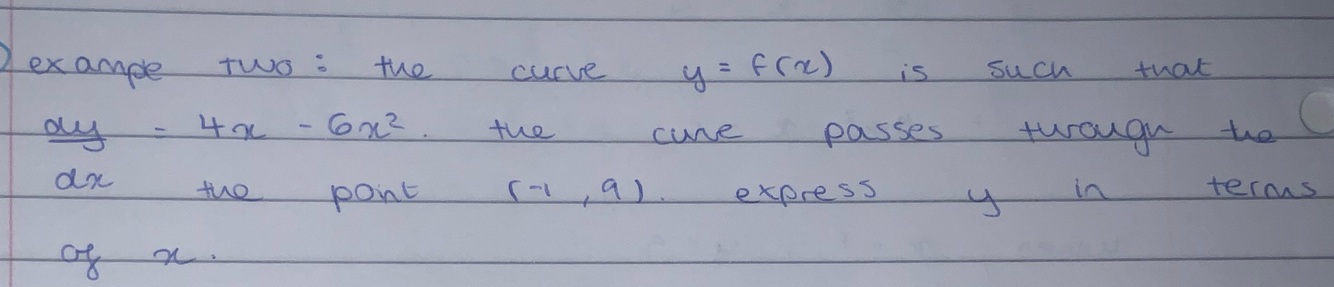 exampe two: the curve y = f(x) is such that
dy/dx = 4x - 6x². the cuve passes through the
the point (-1, 9). express y in terms
of x.